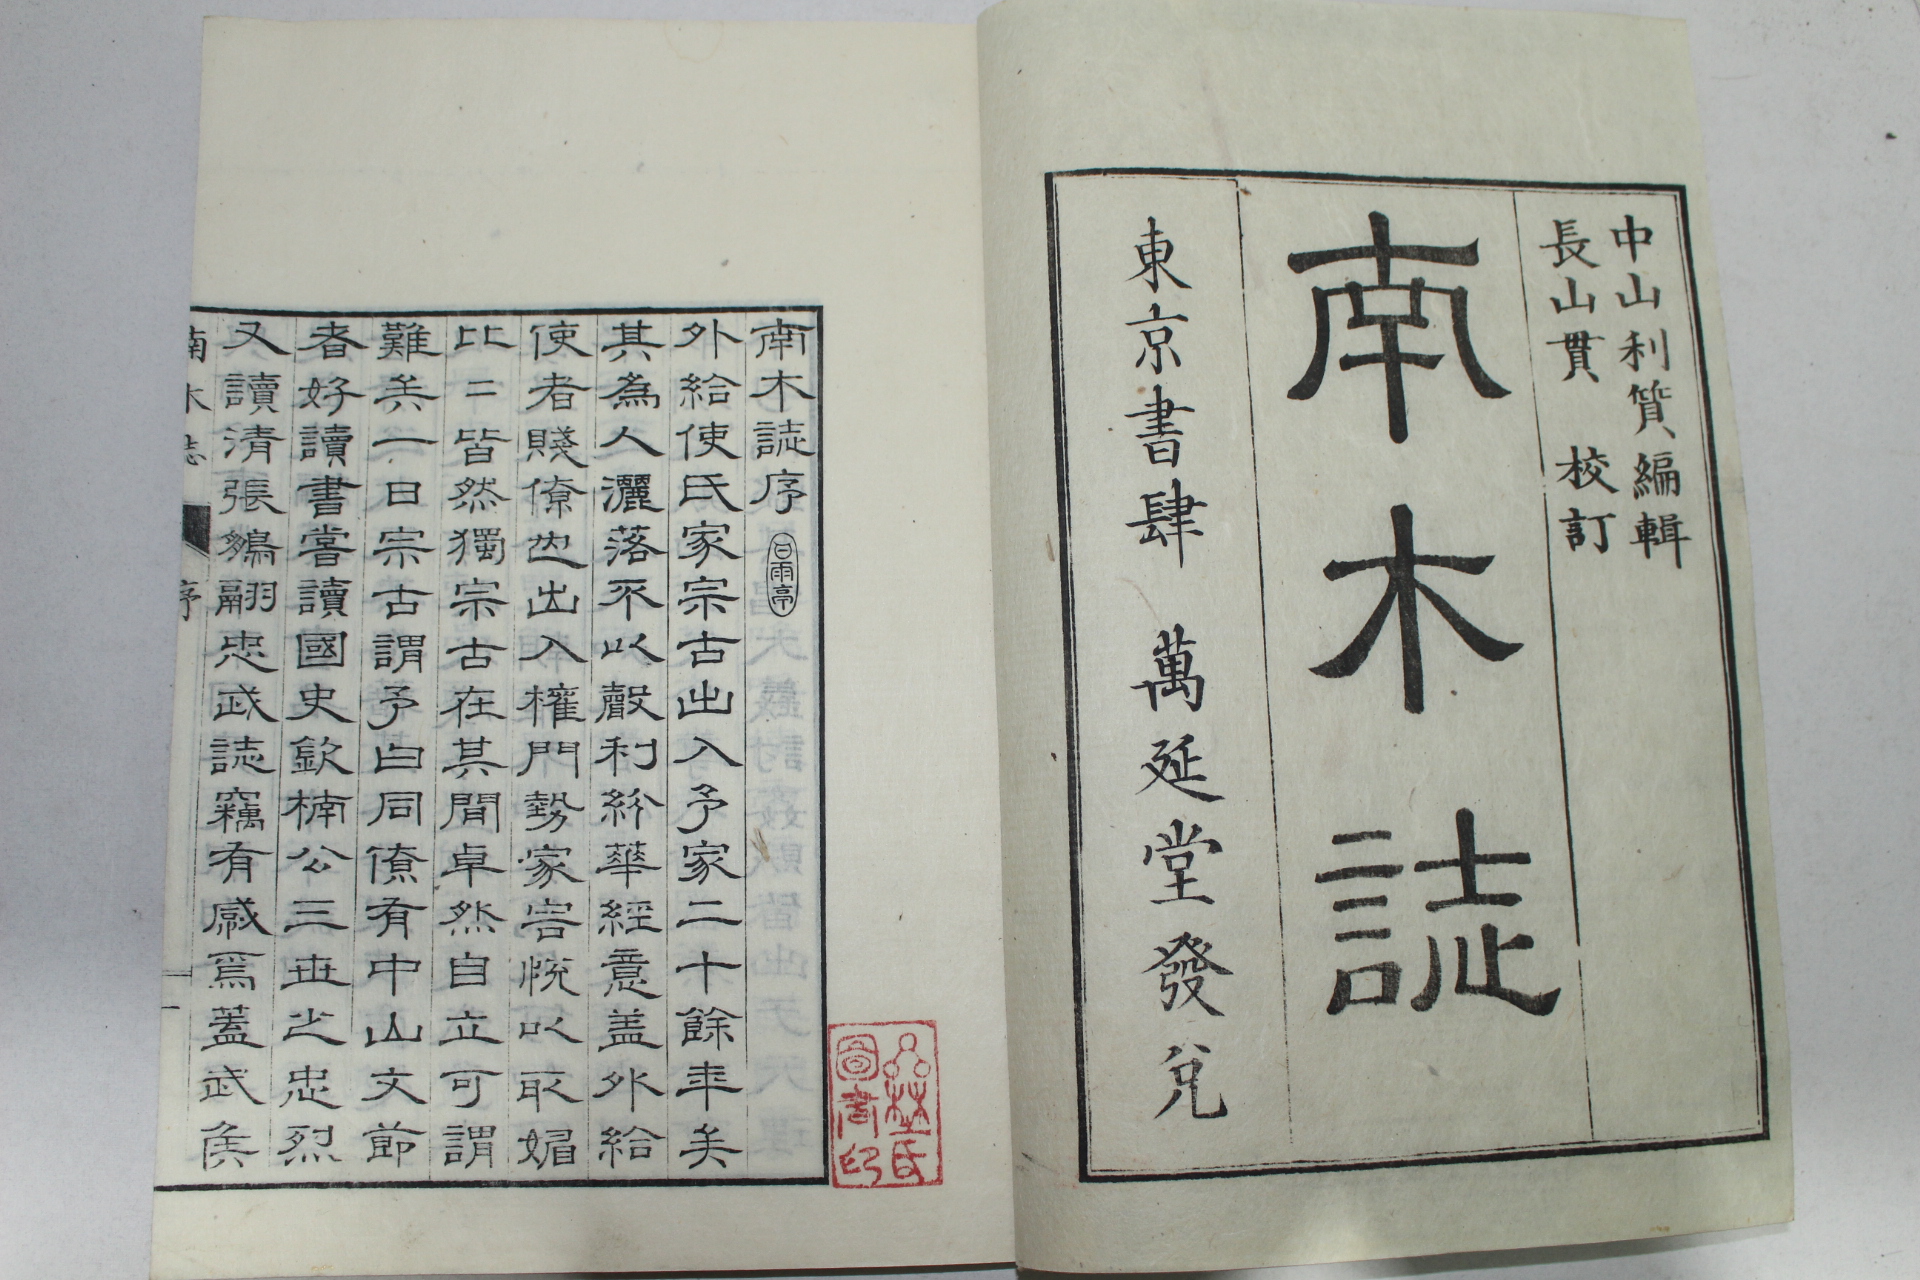 中山利質編輯
長山貫 校訂
南木誌
東京書肆 萬延堂發兌
南木誌序
白雨亭
外給使氏家宗古出入予家二十餘年矣
其為人灑落不以聲利紛華經意盖外給
使者賤僚也出入權門勢家容悅以取媚
比比皆然獨宗古在其間卓然自立可謂
難矣一日宗古謂予曰同僚有中山文節
者好讀書嘗讀國史欽楠公三世之忠烈
又讀清張鵷翮忠武誌竊有感焉蓋武侯
南木誌
序
一
圖書印